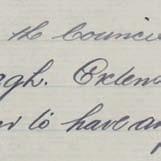 the Council
gh. Exten
to have an